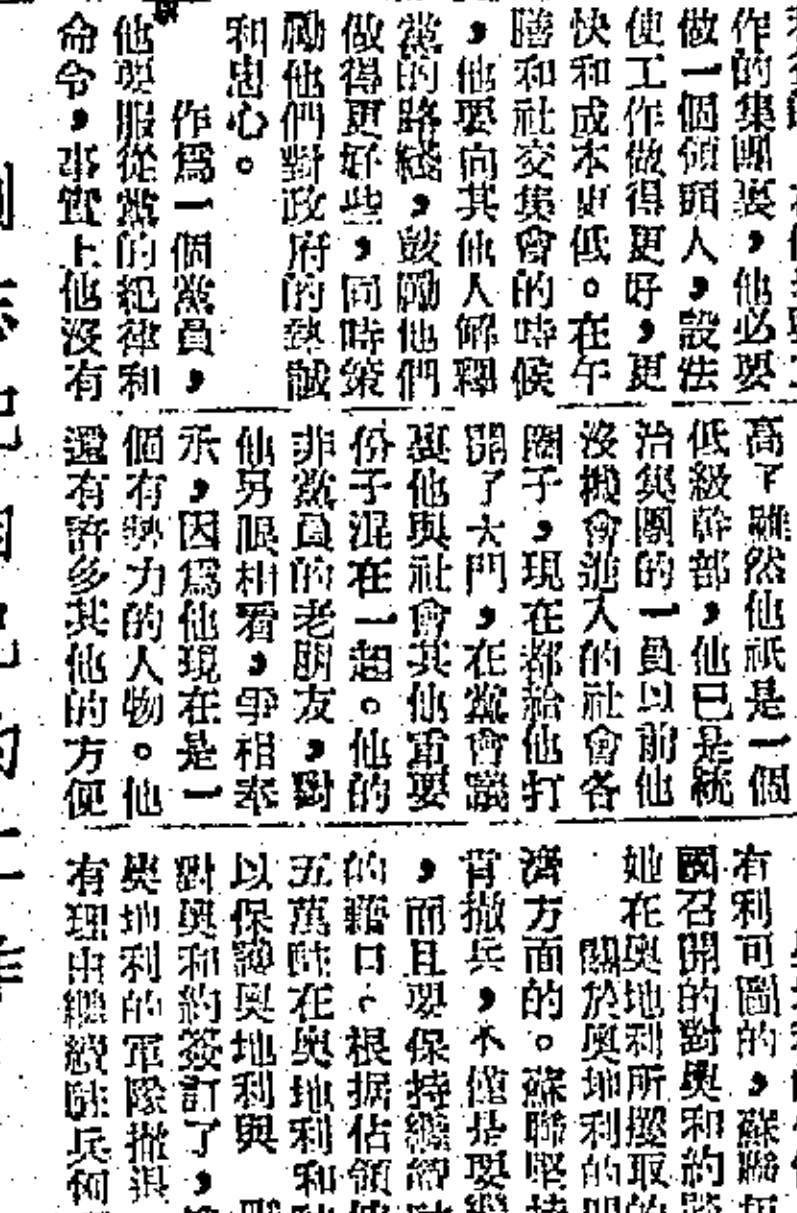 作的集團裏，他必要
做一個領頭人，設法
使工作做得更好，更
快和成本更低。在午
膳和社交集會的時候
，他要向其他人解釋
黨的路綫，鼓勵他們
做得更好些，同時策
勵他們對政府的熱誠
和忠心。
作爲一個黨員，
他要服從黨的紀律和
命令，事實上他沒有
高了雖然他祇是一個
低級幹部，他已是統
治集團的一員以前他
沒機會進入的社會各
圈子，現在都給他打
開了大門，在黨會議
裏他與社會其他重要
份子混在一起。他的
非黨員的老朋友，對
他另眼相看，爭相奉
承，因爲他現在是一
個有勢力的人物。他
還有許多其他的方便
有利可圖的，蘇聯
國召開的對奧和約
她在奧地利所攫取的
關於奧地利的
濟方面的。蘇聯堅持
肯撤兵，不僅是要
，而且要保持繼續
的藉口。根据佔領
五萬駐在奧地利和
以保護奧地利與
對奧和約簽訂了，
奧地利的軍隊撤退
有理由繼續駐兵